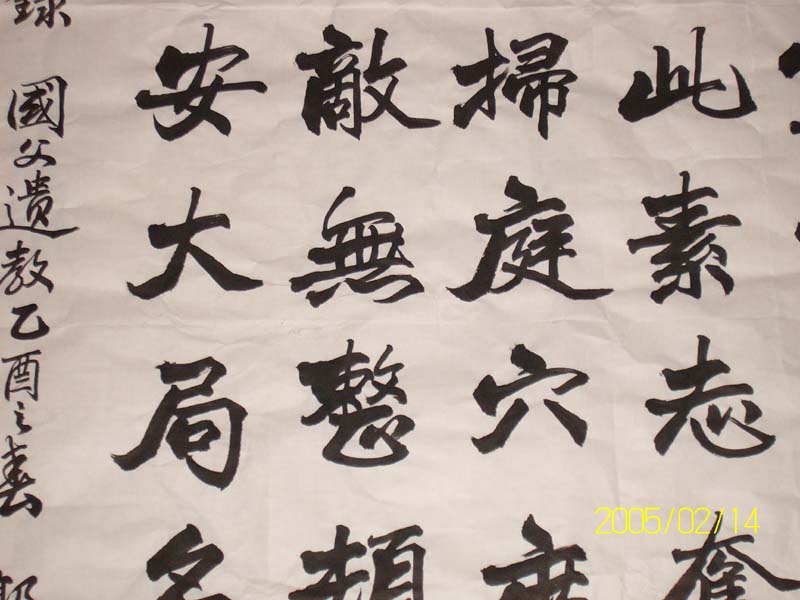 此素志奮
掃庭穴
敵無憗
安大局
錄
國父遺教乙酉之春
2005/02/14